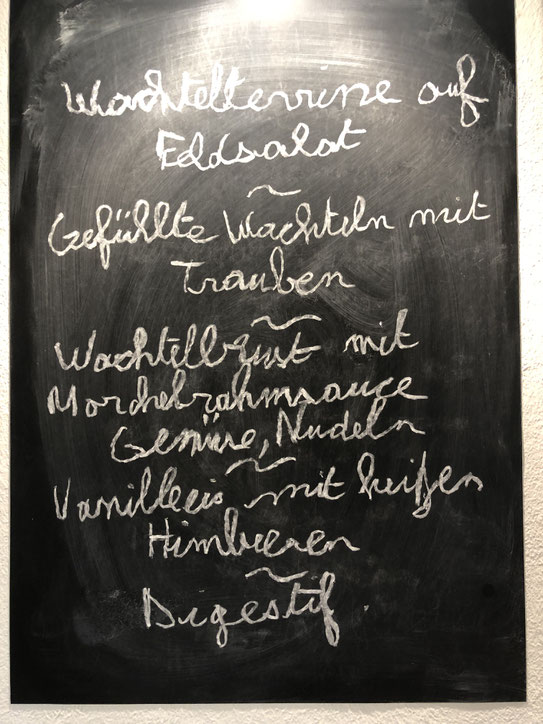 Wachtelterrine auf
Feldsalat
~
Gefüllte Wachteln mit
Trauben
~
Wachtelbrust mit
Morchelrahmsauce
Gemüse, Nudeln
~
Vanilleeis mit heißen
Himbeeren
~
Digestif